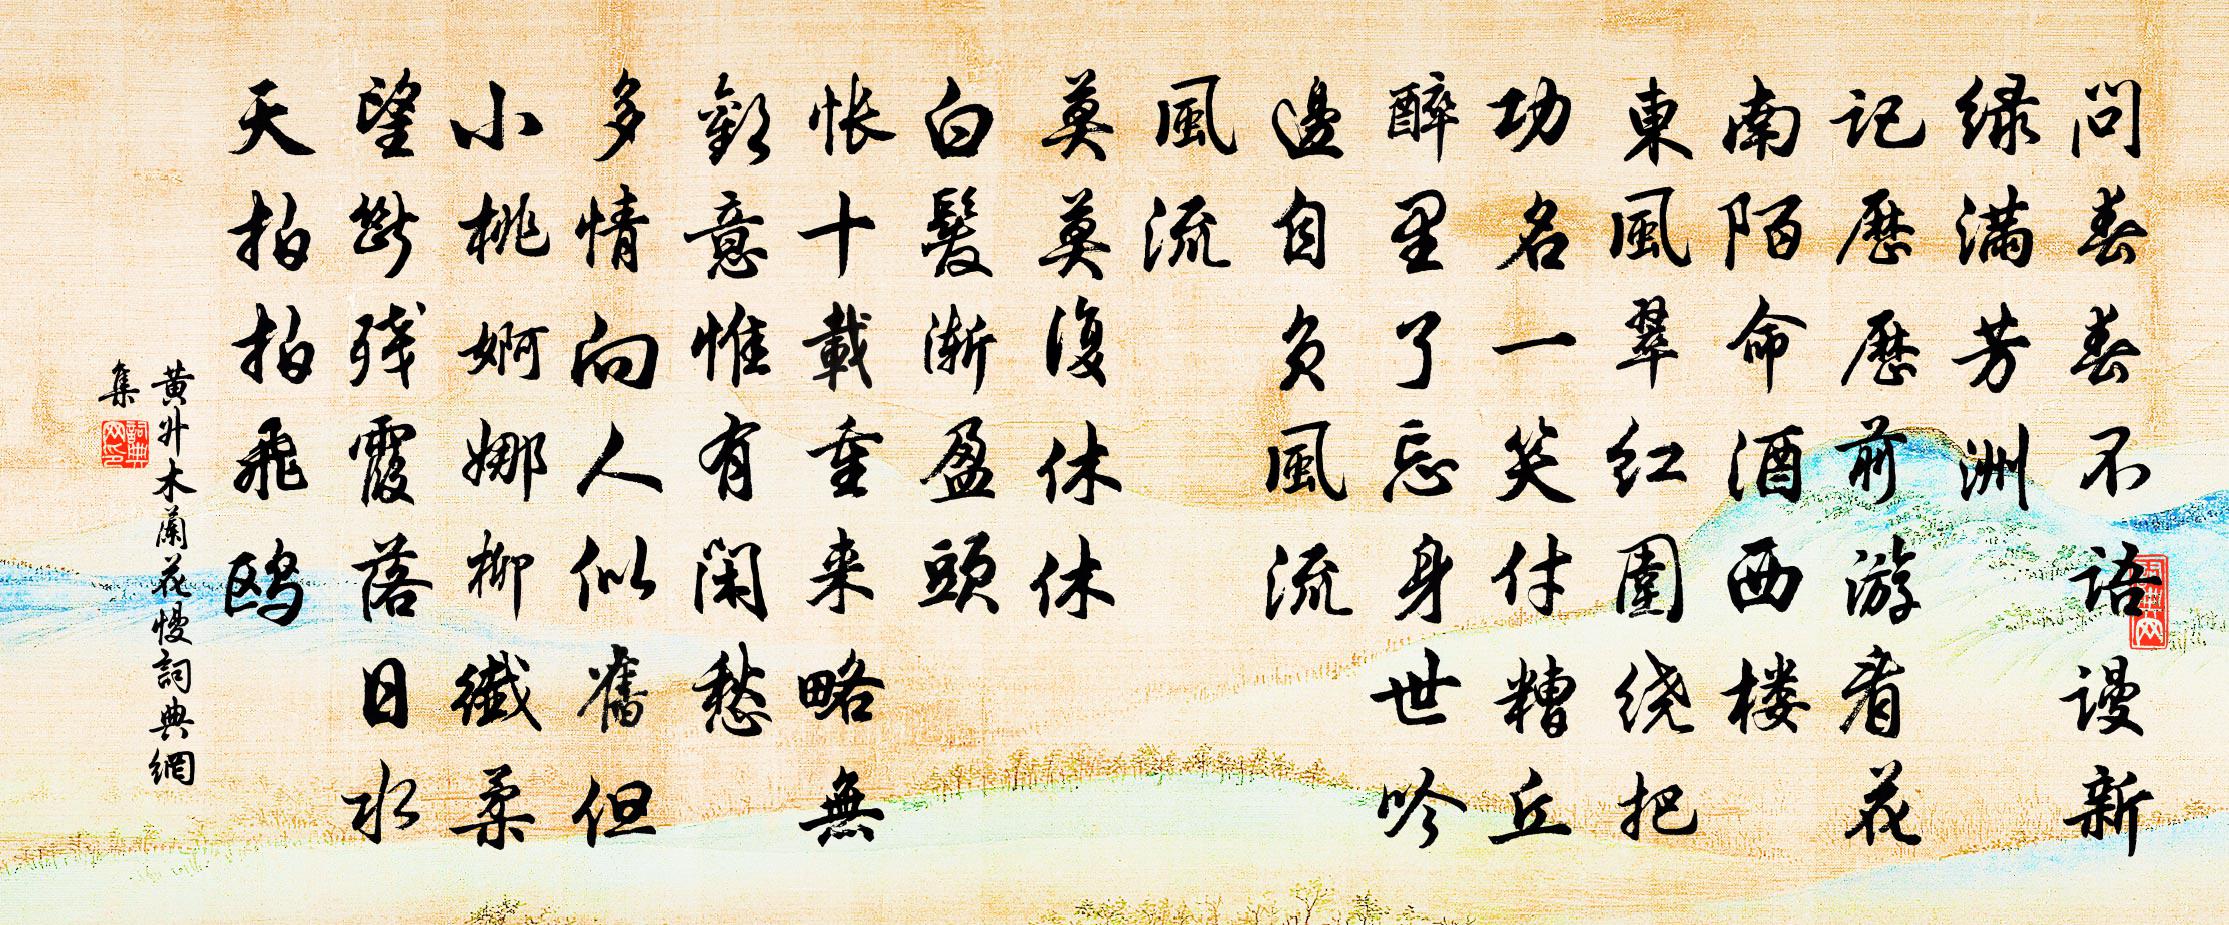 问春春不语谩新
绿满芳洲
记历历前游看花
南陌命酒西楼
東風翠红圍绕把
功名一笑付糟丘
醉里了忘身世吟
邊自负風流
風流
莫莫復休休
白髮渐盈頭
怅十載重来略無
歡意惟有闲愁
多情向人似舊但
小桃婀娜柳纖柔
望断残霞落日水
天拍拍飛鸥
黄升木蘭花慢詞典網
集